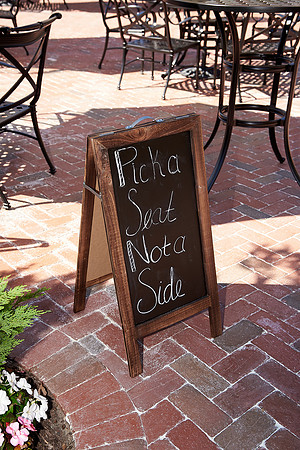 Pick a
Seat
Not a
Side